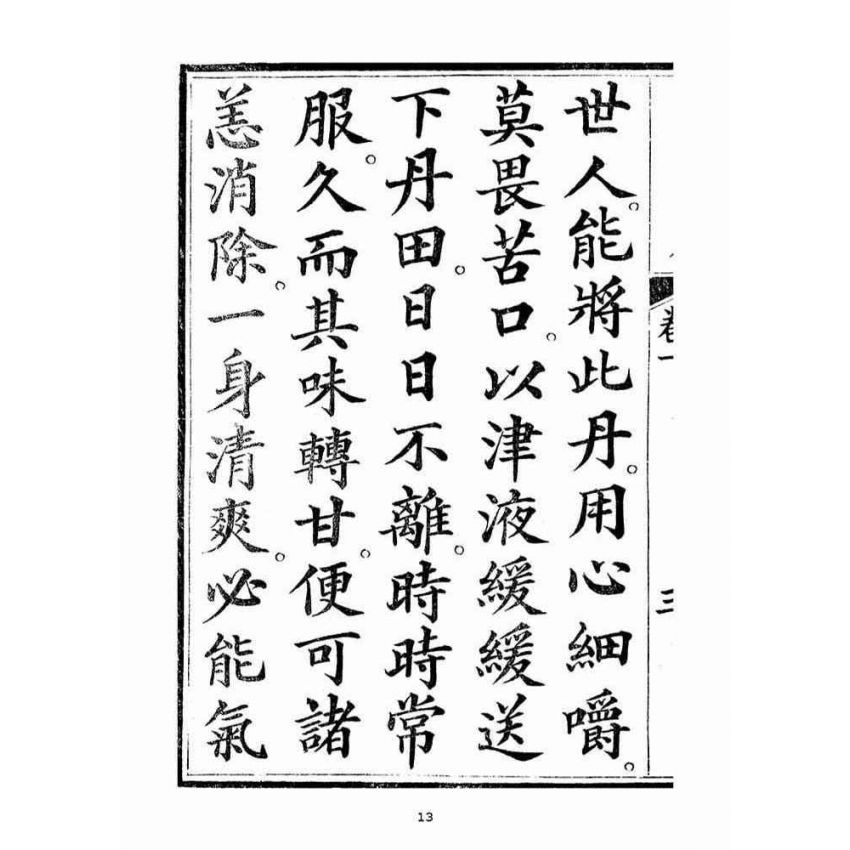 世人。能將此丹。用心細嚼。
莫畏苦口。以津液緩緩送
下丹田。日日不離。時時常
服。久而其味轉甘。便可諸
恙消除。一身清爽。必能氣
卷一
三
13